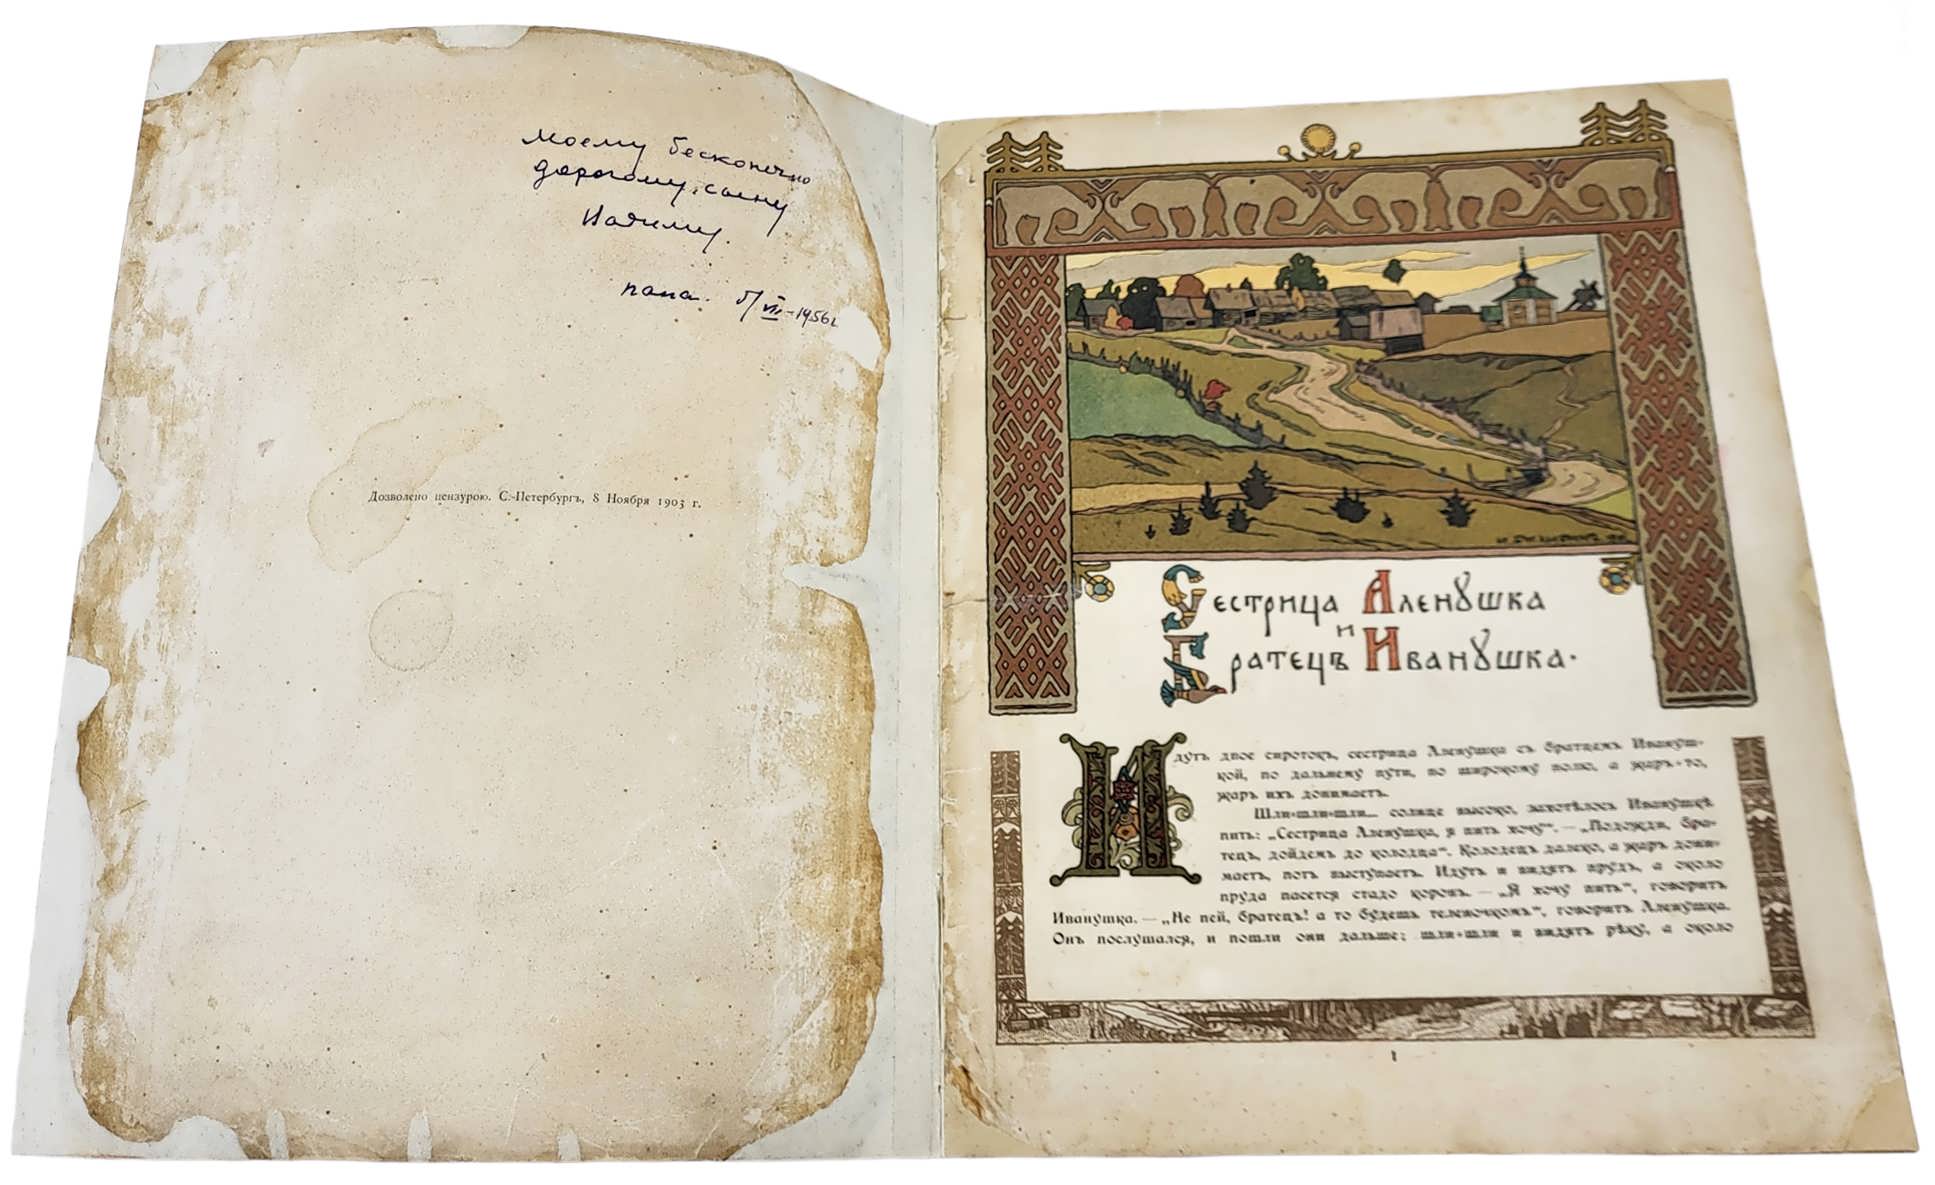 Моему бесконечно
дорогому сыну
папа. 5/VII-1956г
Дозволено цензурою. С.-Петербургъ, 8 Ноября 1903 г.
Сестрица Аленушка
и
Братецъ Иванушка.
Идутъ двое сиротокъ, сестрица Аленушка съ братцемъ Ивануш-
кой, по дальнему пути, по широкому полю, а жаръ-то,
жаръ ихъ донимаетъ.
Шли-шли-шли... солнце высоко, захотѣлось Иванушкѣ
пить: „Сестрица Аленушка, я пить хочу“. — „Подожди, бра-
тецъ, дойдемъ до колодца“. Колодецъ далеко, а жаръ дони-
маетъ, потъ выступаетъ. Идутъ и видятъ прудъ, а около
пруда пасется стадо коровъ. — „Я хочу пить“, говоритъ
Иванушка. — „Не пей, братецъ! а то будешь теленочкомъ“, говоритъ Аленушка.
Онъ послушался, и пошли они дальше; шли-шли и видятъ рѣку, а около
1